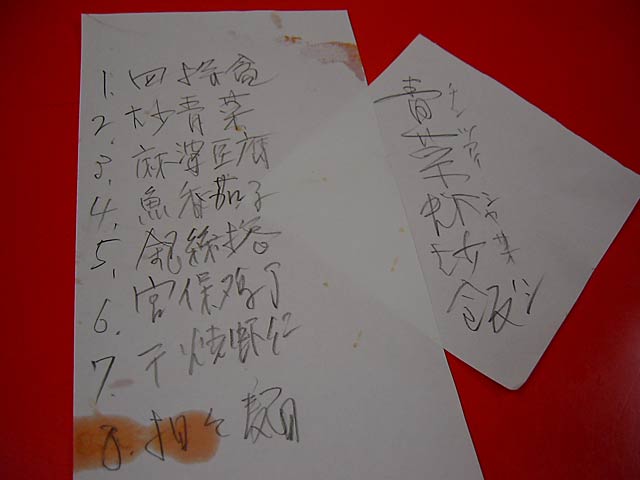 1. 四拼
2. 炒青菜
3. 麻婆豆腐
4. 魚香茄子
5. 銀絲捲
6. 宮保鸡丁
7. 干烧虾仁
8. 担々麺
青菜虾炒飯